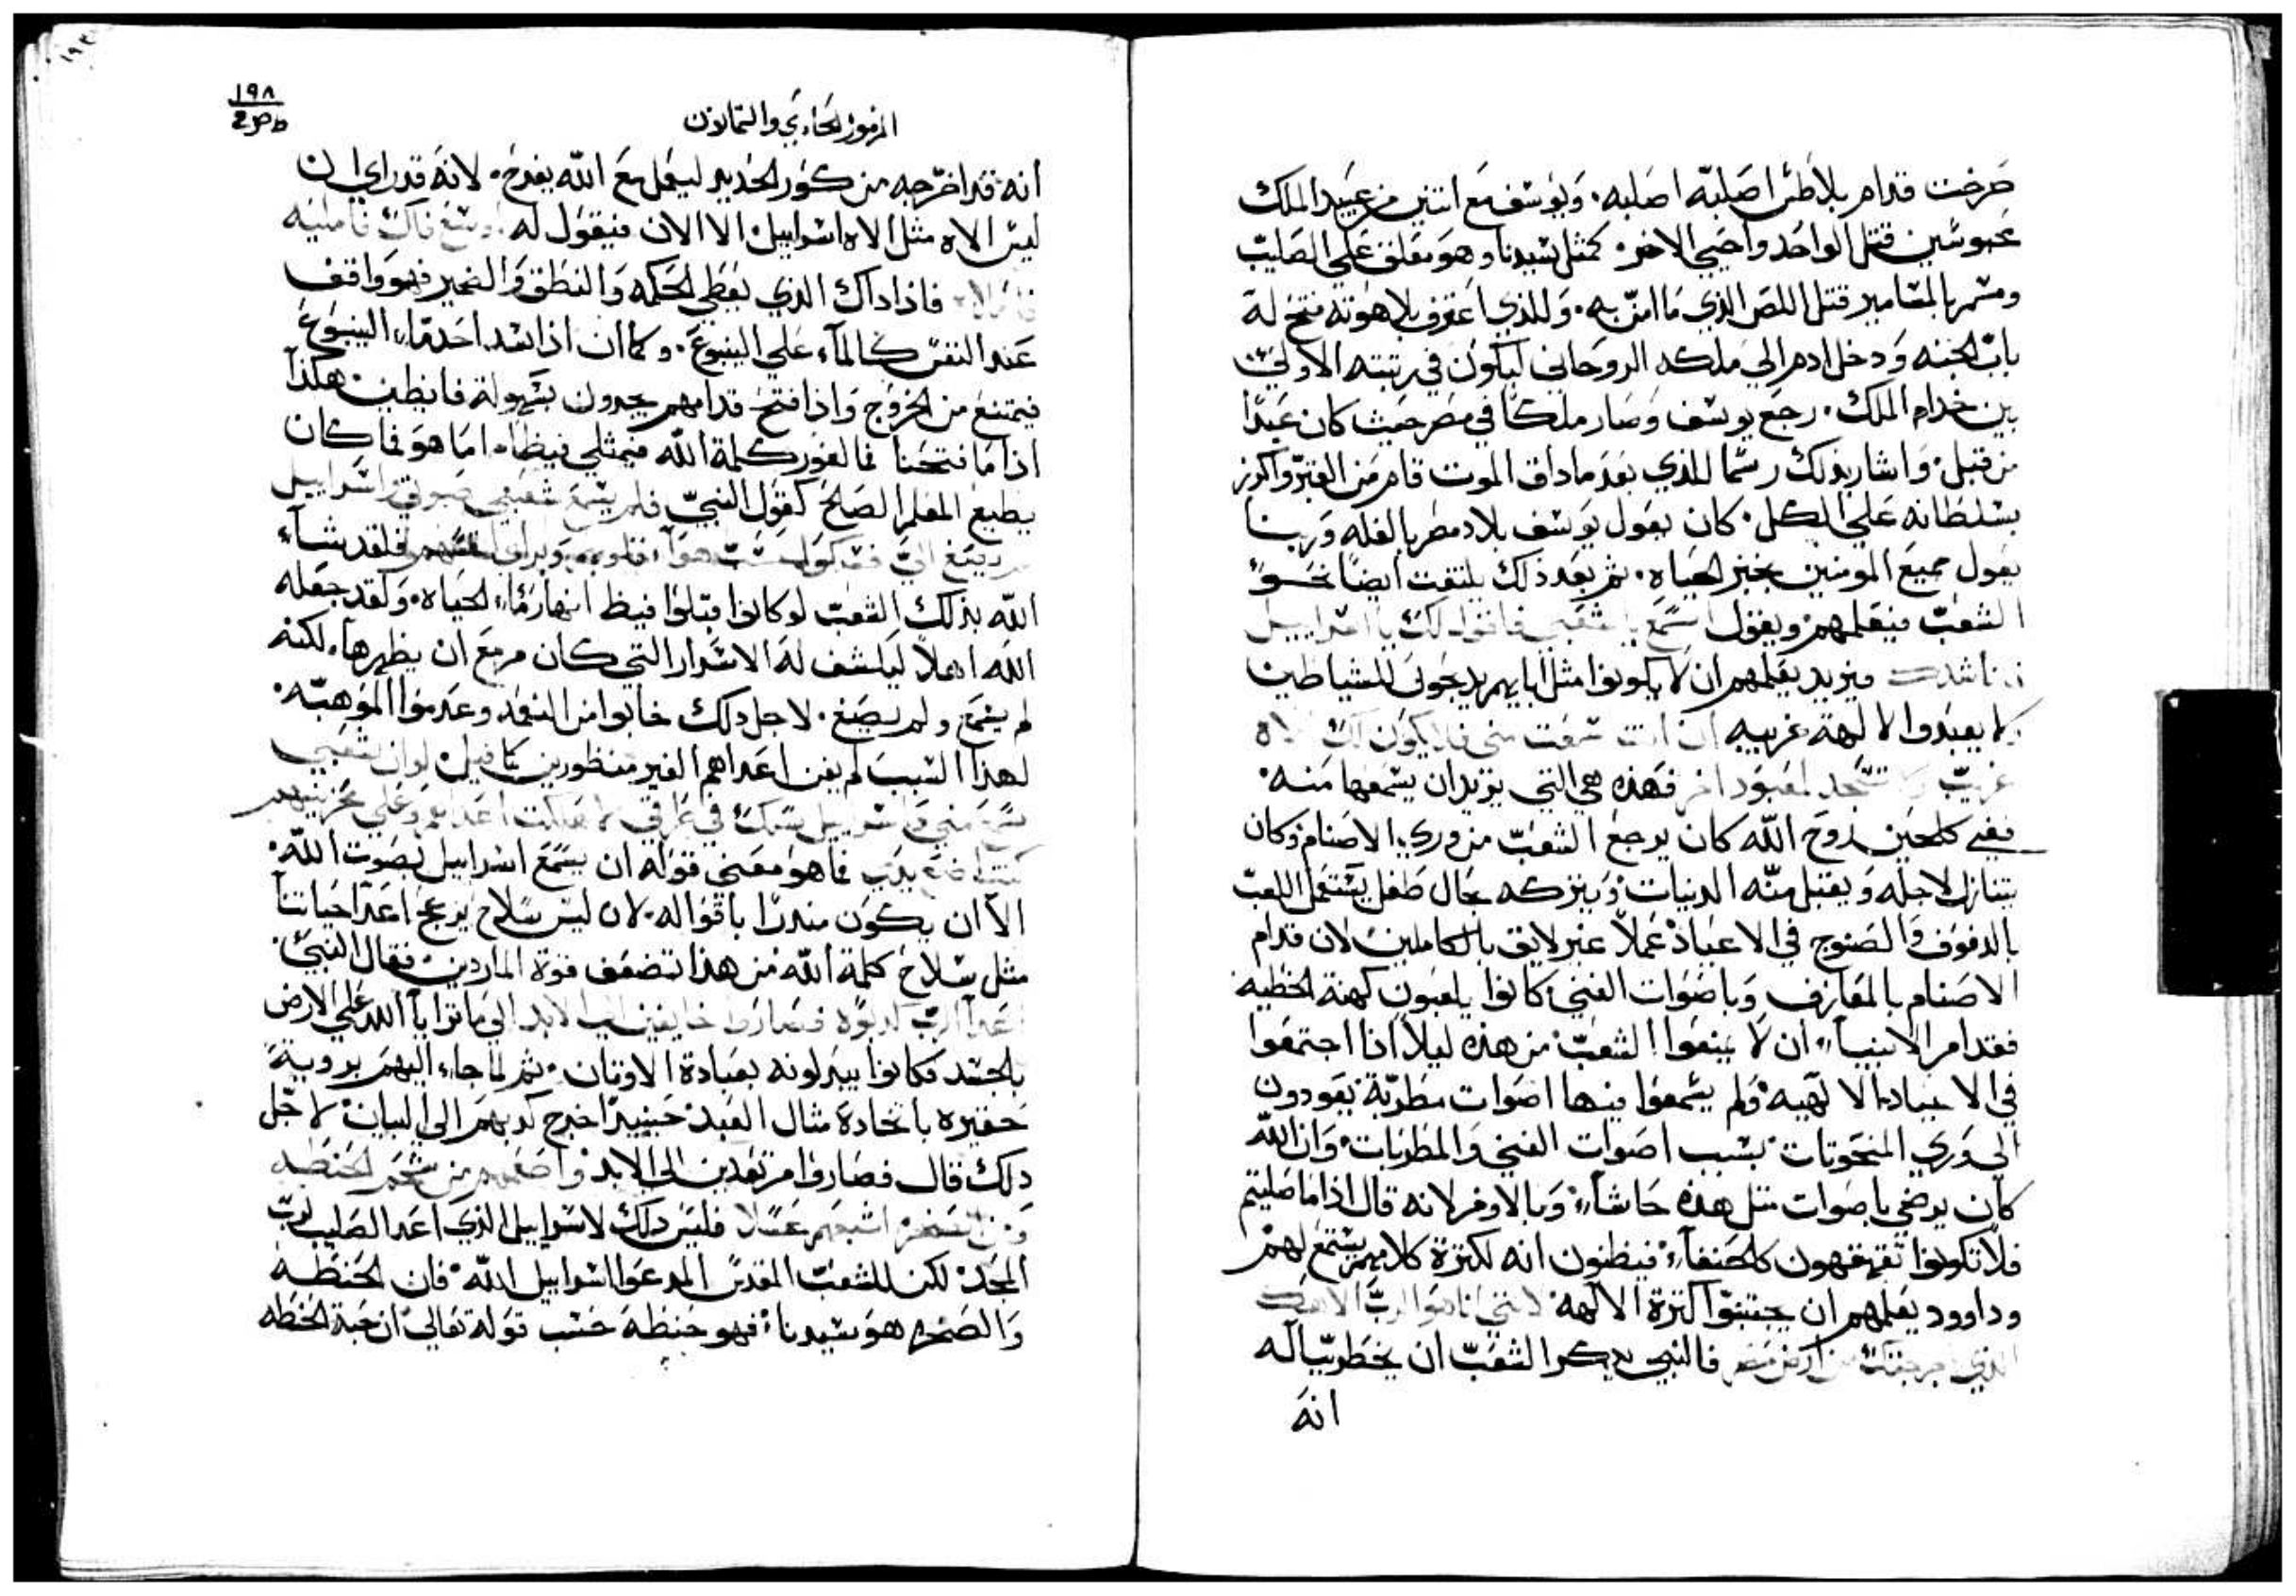 صرخت قدام بلاطس اصلبه اصلبه. ويوسف مع اتنين من عبيد الملك
محبوسين قتل الواحد واحيي الاخر. كمثل سيدنا وهو معلق علي الصليب
ومسمر بالمسامير قتل اللص الذي ما امن به. وللذي اعترف بلاهوته فتح له
باب الجنه ودخل ادم الي ملكه الروحاني ليكون في رتبته الاولي
بين خدام الملك. رجع يوسف وصار ملكا في مصر حيث كان عبدا
من قبل. واشار بذلك رسما للذي بعد ما داق الموت قام من القبر واكرز
بسلطانه علي الكل. كان يعول يوسف بلاد مصر بالغله وربنا
يعول جميع المومنين بخبز الحياه. ثم بعد ذلك يلتفت ايضا نحو
الشعب فيعلمهم ويقول اسمع يا شعبي فاقول لك يا اسراييل
فاناشدك فيريد يعلمهم ان لا يكونوا مثل ابايهم يدبحون للشياطين
ولا يعبدوا الالهة غريبه ان انت سمعت مني فلا يكون لك الاه
غريب ولا تسجد لمعبود اخر فهذه هي التي يريد ان يسمعها منه.
ففي كل حين روح الله كان يرجع الشعب من وري الاصنام وكان
يتنازل لاجله ويقبل منه الدنيات ويتركه بحال طفل يستعمل اللعب
بالدفوف والصنوج في الاعياد عملا غير لايق بالكاملين لان قدام
الاصنام بالمعازف وباصوات الغني كانوا يلعبون كهنة الخطيه
فقد امر الانبياء ان لا يمنعوا الشعب من هذه ليلا اذا اجتمعوا
في الاعياد الالهيه ولم يسمعوا فيها اصوات مطربة يعودون
الي وري المنحوتات بسبب اصوات الغني والمطربات وان الله
كان يرضي باصوات مثل هذه حاشا. وبالاوفر لانه قال اذا ما صليتم
فلا تكونوا تقهقهون كالحنفاء فيظنون انه لكثرة كلامهم يستمع لهم
وداوود يعلمهم ان يجتنبوا كثرة الالهه لانني انا هو الرب الاهك
الذي اخرجتك من ارض مصر فالنبي يدكر الشعب ان يخطر بباله
انه
١٩٨
المزمور الحادي والتمانون
انه قد اخرجه من كور الحديد ليعمل مع الله بفرح. لانه قد راي ان
ليس الاه مثل الاه اسراييل الا الان فيقول له اوسع فاك فامليه
فاملاه فاذا داك الذي يعطي الحكمه والنطق والضمير فهو واقف
عند النفس كالماء علي الينبوع. وكما ان اذا سد احد ماء الينبوع
فيمتنع من الخروج واذا فتح قدامهم يجرون بسهوله فايظين هكذا
اذا ما فتحنا فالفور كلمة الله فيمتلي فيظاه اما هو فما كان
يطيع المعلم الصالح كقول النبي فلم يسمع شعبي صوتي واسراييل
لم يصغ الي فلقد شاء
الله بذلك الشعب لو كانوا قبلوا فيظ انهار ماء الحياه. ولقد جعله
الله اهلا ليكشف له الاسرار التي كان مزمع ان يظهرها. لكنه
لم يسمع ولم يصغ. لاجل دلك خابوا من النعمه وعدموا الموهبه.
لهذا السبب لم يفن اعداهم الغير منظورين كما قيل لو ان شعبي
سمع مني واسراييل سلك في طرقي لاهلكت اعداهم وعلي محزنيهم
كنت اضع يدي فما هو معني قوله ان يسمع اسراييل لصوت الله.
الا ان يكون منذرا باقواله. لان ليس سلاح يزعج اعدا حياتنا
مثل سلاح كلمة الله فمن هذا تضعف قوة الماردين فقال النبي
اعدا الرب كدبوه فصاروا خايفين الي الابد الي ما تراياا الله علي الارض
بالجسد فكانوا يبدلونه بعبادة الاوتان. ثم لما جاء اليهم بروية
حقيره باتخاده مثال العبد حينيد اخرج كدبهم الي البيان لاجل
دلك قال فصاروا مرتعدين الي الابد واطعمهم من شحم الحنطه
ومن الصخره اشبعهم عسلا فليس دلك لاسراييل الذي اعد الصليب لرب
المجد لكن للشعب المقدس المدعوا اسراييل الله. فان الحنطه
والصخره هو سيدنا فهو حنطه حسب قوله تعالي ان حبة الحنطه